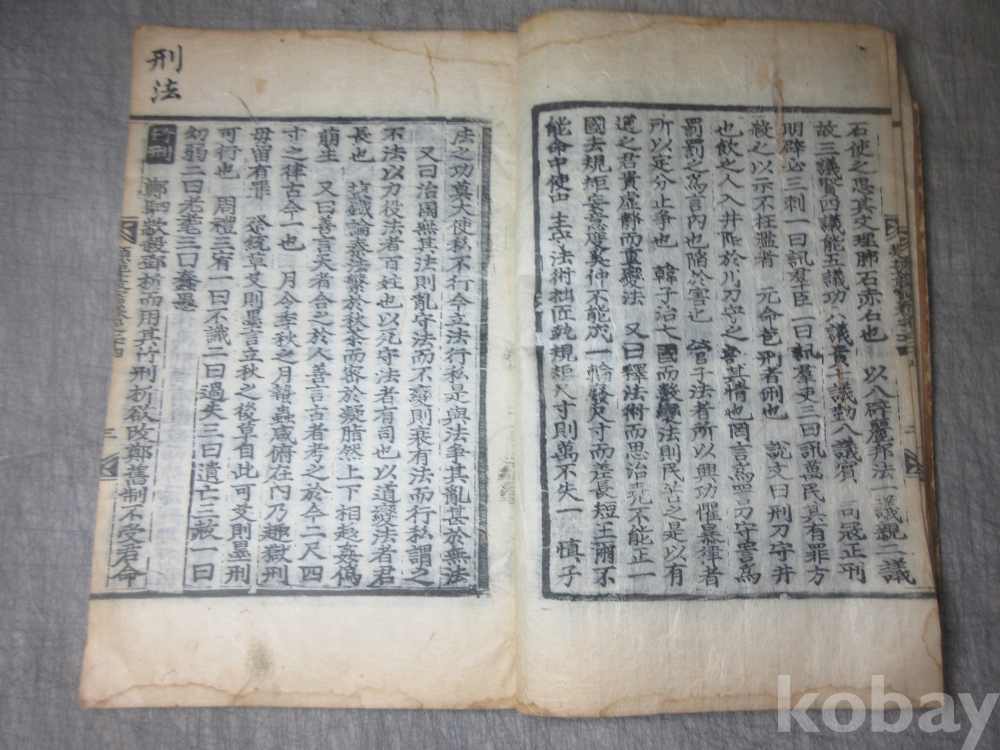 石使之思其文理肺石赤石也 以八辟麗邦法一議親二議
故三議賢四議能五議功六議貴七議勤八議賓 司寇正刑
明辟必三刺一曰訊羣臣二曰訊羣吏三曰訊萬民其有罪方
殺之以示不枉濫者 元命苞刑者侀也 說文曰刑刀守井
也飲之人入井陷於川刀守之割其情也罔言爲詈刀守詈爲
罰罰之爲言內也陷於害也 管子法者所以興功懼暴律者
所以定分止爭也 韓子治大國而數變法則民苦之是以有
道之君貴虛靜而重變法 又曰釋法術而思治堯不能正一
國去規矩妄意度奚仲不能成一輪發尺寸而差長短王爾不
能命中使中主守法術拙匠執規矩尺寸則萬不失一 慎子
法之功莫大使私不行今立法行私是與法爭其亂甚於無法
又曰治國無其法則亂守法而不變則衰有法而行私謂之
不法以力役法者百姓也以死守法者有司也以道變法者君
長也 鹽鐵論秦法繁於秋荼而密於凝脂然上下相遁姦僞
萌生 又曰善言天者合之於人善言古者考之於今二尺四
寸之律古今一也 月令季秋之月蟄蟲咸俯在內乃趣獄刑
毋留有罪 祭統草艾則墨言立秋之後草自此可艾則墨刑
可行也 周禮三宥一曰不識二曰過失三曰遺亡三赦一曰
幼弱二曰老耄三曰蠢愚
竹刑 鄭駟歂殺鄧析而用其竹刑析欲改鄭舊制不受君命
刑法
kobay